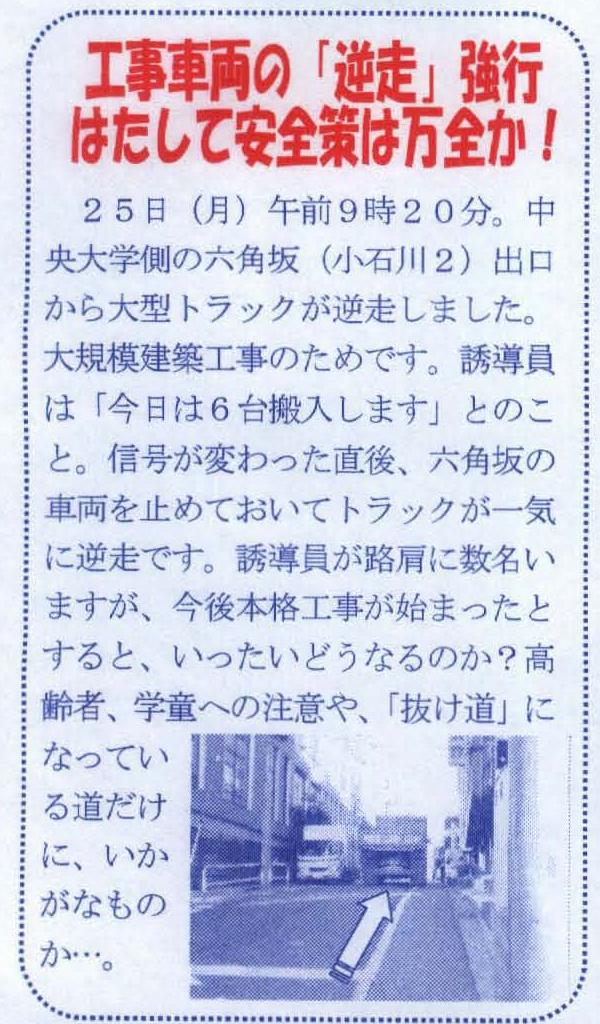 工事車両の「逆走」強行
はたして安全策は万全か！
　２５日（月）午前９時２０分。中
央大学側の六角坂（小石川２）出口
から大型トラックが逆走しました。
大規模建築工事のためです。誘導員
は「今日は６台搬入します」とのこ
と。信号が変わった直後、六角坂の
車両を止めておいてトラックが一気
に逆走です。誘導員が路肩に数名い
ますが、今後本格工事が始まったと
すると、いったいどうなるのか？高
齢者、学童への注意や、「抜け道」に
なってい
る道だけ
に、いか
がなもの
か…。